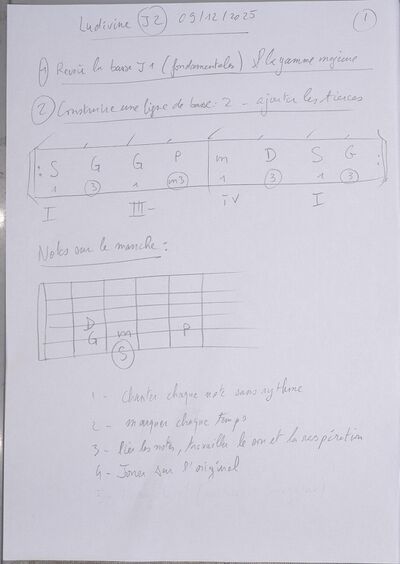 Ludivine J2 09/12/2025 1
1 Revoir la basse J1 (fondamentales) & la gamme majeure
2 Construire une ligne de basse: 2 - ajouter les tierces
: S G G P m D S G :
1 3 1 m3 1 3 1 3
I III- IV I
Notes sur le manche :
D
G m P
S
1 - Chanter chaque note sans rythme
2 - marquer chaque temps
3 - lier les notes, travailler le son et la respiration
4 - Jouer sur l'original